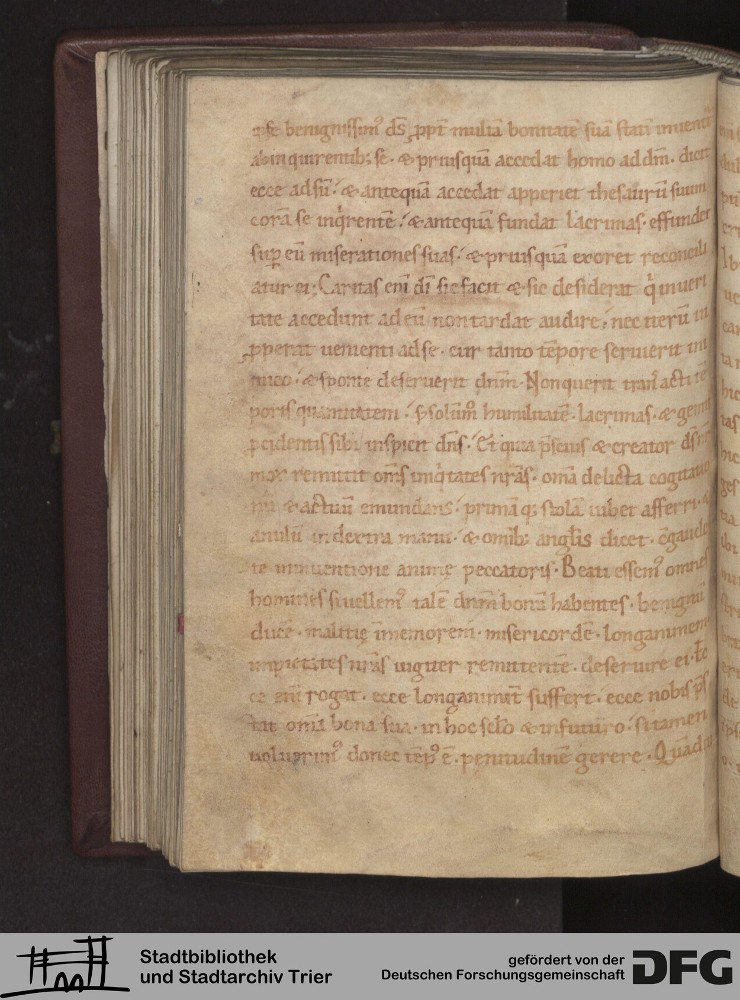 se benignissim᷒ ds̄ ꝓpt̄ multā bonitatē suā statī inuenit᷒
ab inquirentib; se · & priusquā accedat homo ad dm̄ · dicit
ecce adsū · & antequā accedat apperiet thesaurū suum
corā se inq'rentē · & antequā fundat lacrimas · effundet
sup eū miserationes suas · & priusquā exoret reconcili
atur ei ; Caritas eni dī sic facit & sic desiderat q inueri
tate accedunt ad eū non tardat audire · nec iterū
ꝓperat uenienti ad se · cur tanto tēpore seruierit
& sponte deseruerit dn̄m · Non querit trans acti tē
poris quantitatem · s; solum᷒ humilitatē · lacrimas · & gemit᷒
ꝓcidentis sibi inspicit dn̄s · Et quia p̄scius & creator ds̄
mox remittit om̄s iniq'tates nr̄as · om̄a delicta cogitatio
nū & actuū emundans · primā q; stolā iubet afferri ·
anulū in dextra manu · & omib; angl̄is dicet · c̄gaude
te in inuentione animę peccatoris · Beati essem᷒ omnes
homines si uellem᷒ talē dn̄m bonū habentes · benignū
ducē · malitię inmemorem · misericordē · longanimem
impietates nr̄as iugiter remittentē · deseruire ei ·
ce eni rogat · ecce longanimit̄ suffert · ecce nobis p̄s
tat om̄a bona sua · in hoc sclo & in futuro · si tamen
uoluerim᷒ donec tēp᷒ ē · penitudinē gerere · Quādiu
Stadtbibliothek
und Stadtarchiv Trier
gefördert von der
Deutschen Forschungsgemeinschaft
DFG